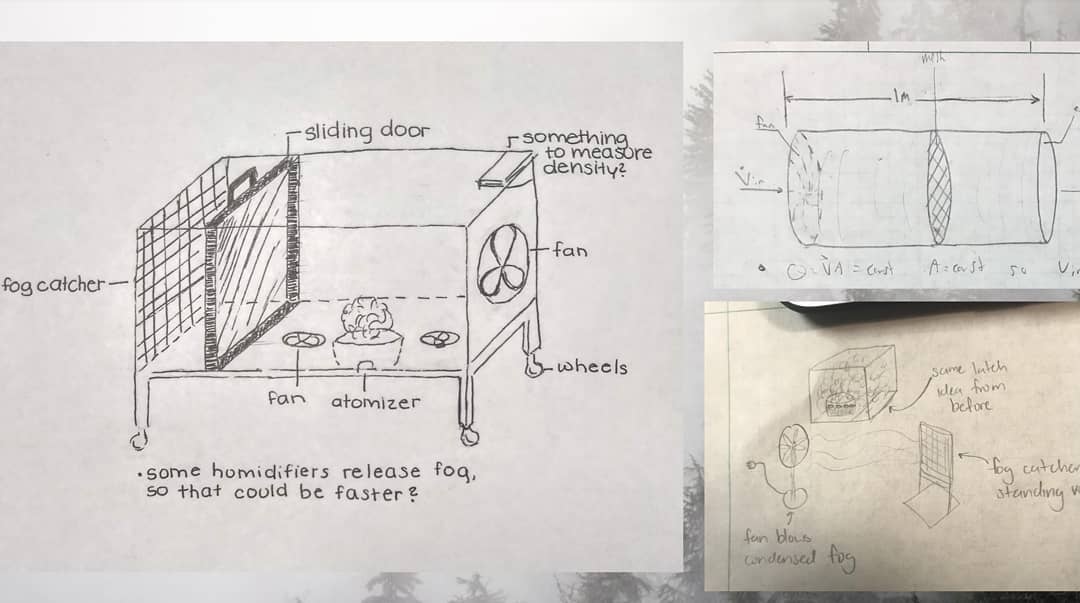 sliding door
something
to measure
density?
fan
fog catcher
wheels
fan
atomizer
• some humidifiers release fog,
so that could be faster?
mesh
1m
fan
V̇in
• Q = V̇A = const A = const so
same latch
idea from
before
fog catcher
standing
fan blows
condensed fog